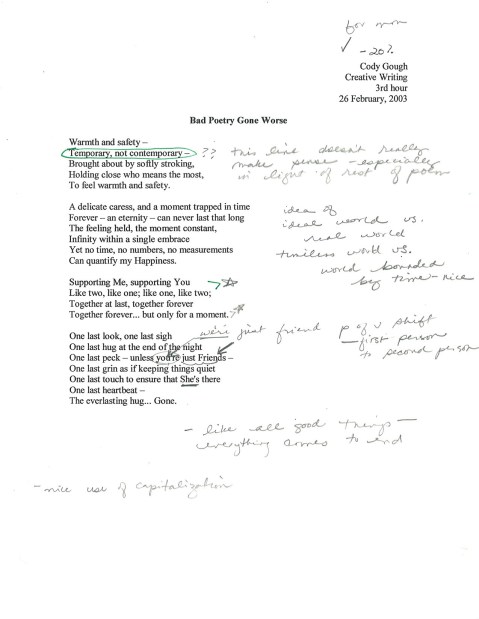 for mon
✓ -20%
Cody Gough
Creative Writing
3rd hour
26 February, 2003
Bad Poetry Gone Worse
Warmth and safety –
Temporary, not contemporary – ?? this line doesn't really
Brought about by softly stroking, make sense - especially
Holding close who means the most, in light of rest of poem
To feel warmth and safety.
A delicate caress, and a moment trapped in time
Forever – an eternity – can never last that long
The feeling held, the moment constant,
Infinity within a single embrace
Yet no time, no numbers, no measurements
Can quantify my Happiness.
idea of
ideal world vs.
real world
timeless world vs.
world bounded
by time - nice
Supporting Me, supporting You
Like two, like one; like one, like two;
Together at last, together forever
Together forever... but only for a moment.
One last look, one last sigh
One last hug at the end of the night
One last peck – unless you're just Friends –
One last grin as if keeping things quiet
One last touch to ensure that She's there
One last heartbeat –
The everlasting hug... Gone.
we're just friend
p of v shift
- first person
to second person
- like all good things -
everything comes to end
- nice use of capitalization